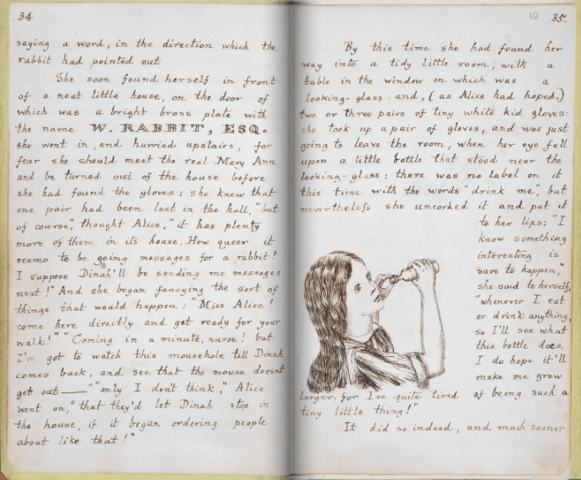 34
saying a word, in the direction which the
rabbit had pointed out
She soon found herself in front
of a neat little house, on the door of
which was a bright brass plate with
the name W. RABBIT, ESQ.
she went in, and hurried upstairs, for
fear she should meet the real Mary Ann
and be turned out of the house before
she had found the gloves: she knew that
one pair had been lost in the hall, "but
of course," thought Alice, "it has plenty
more of them in its house. How queer it
seems to be going messages for a rabbit!
I suppose Dinah'll be sending me messages
next!" And she began fancying the sort of
things that would happen: "Miss Alice!
come here directly and get ready for your
walk!" "Coming in a minute, nurse! but
I've got to watch this mousehole till Dinah
comes back, and see that the mouse doesn't
get out —" "only I don't think," Alice
went on, "that they'd let Dinah stop in
the house, if it began ordering people
about like that!"
19
35.
By this time she had found her
way into a tidy little room, with a
table in the window on which was a
looking-glass and, (as Alice had hoped,)
two or three pairs of tiny white kid gloves:
she took up a pair of gloves, and was just
going to leave the room, when her eye fell
upon a little bottle that stood near the
looking-glass: there was no label on it
this time with the words "drink me," but
nevertheless she uncorked it and put it
to her lips: "I
know something
interesting is
sure to happen,"
she said to herself,
"whenever I eat
or drink anything,
so I'll see what
this bottle does.
I do hope it'll
make me grow
larger, for I'm quite tired of being such a
tiny little thing!"
It did so indeed, and much sooner